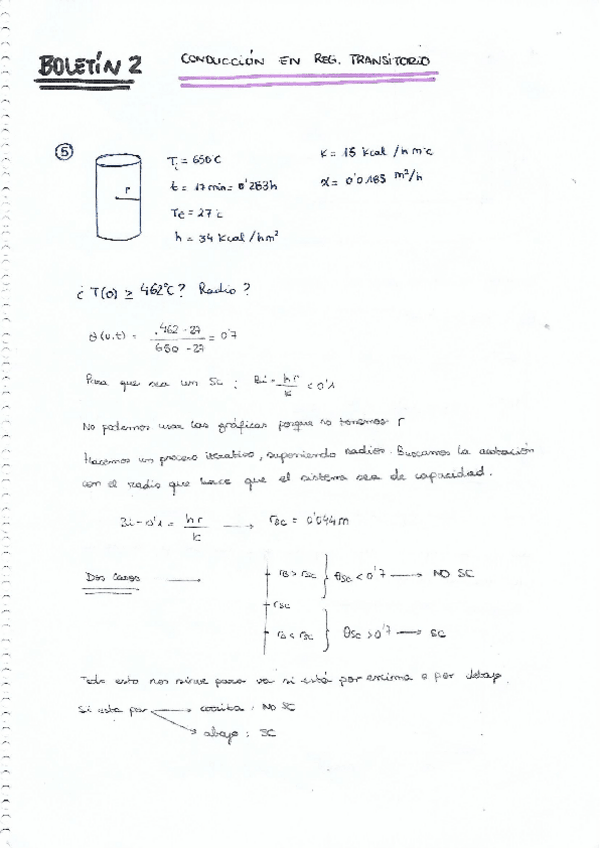 BOLETÍN 2
CONDUCCIÓN EN REG. TRANSITORIO
5
r
Ti = 650°C
t = 17 min = 0'283 h
Te = 27°C
h = 34 Kcal/hm²
K = 15 Kcal/h m°C
α = 0'0185 m²/h
¿T(0) ≥ 462°C? Radio?
θ(0,t) = (462 - 27)/(650 - 27) = 0'7
Para que sea un SC: Bi = hr/K < 0'1
No podemos usar las gráficas porque no tenemos r
Hacemos un proceso iterativo, suponiendo radios. Buscamos la acotación
con el radio que hace que el sistema sea de capacidad.
Bi = 0'1 = hr/K → rsc = 0'044 m
Dos casos →
r0 > rsc } θsc < 0'7 → NO SC
rsc
r0 < rsc } θsc > 0'7 → SC
Todo esto nos sirve para si está por encima o por debajo.
Si esta por → : NO SC
→ abajo: SC